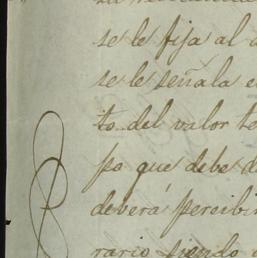 se le fija al
se le señala e
to del valor te
po que debe d
deverá percibir
rario siendo